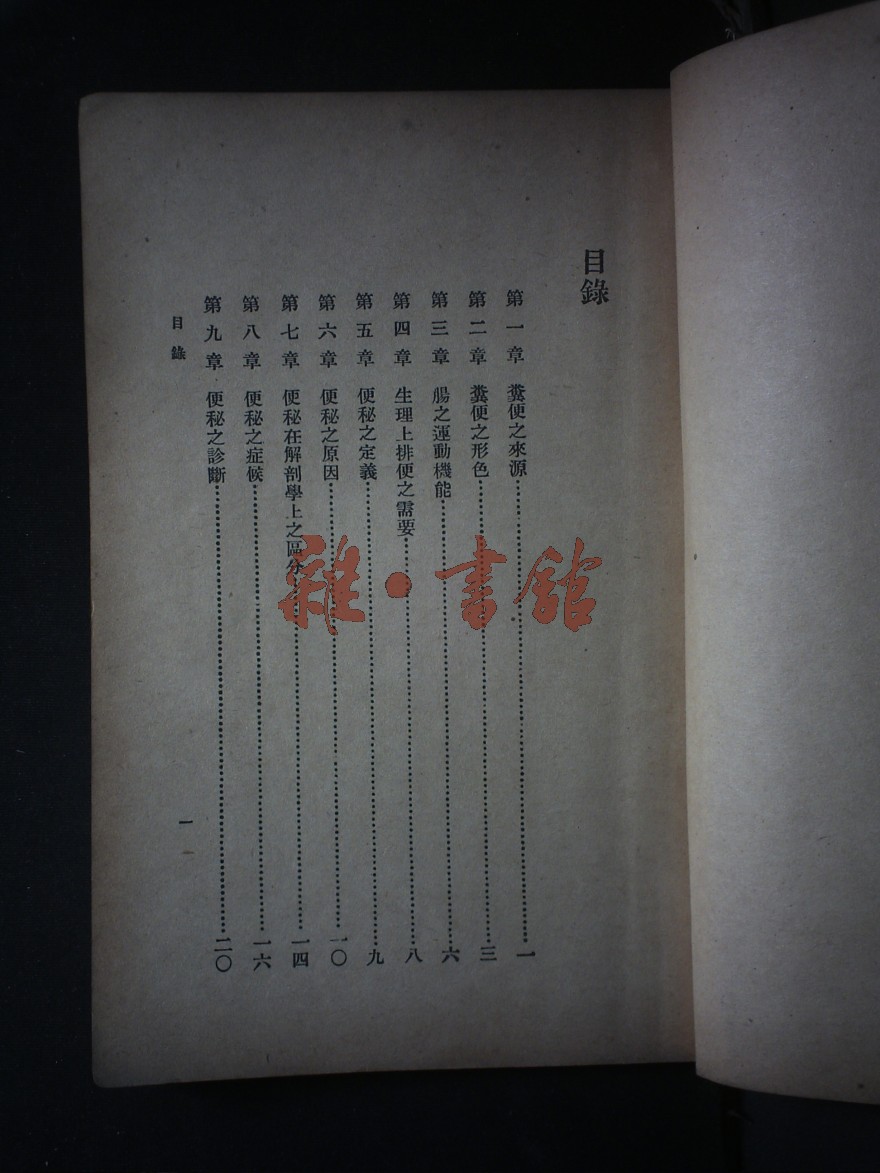 目錄
第一章 糞便之來源……一
第二章 糞便之形色……三
第三章 腸之運動機能……六
第四章 生理上排便之需要……八
第五章 便秘之定義……九
第六章 便秘之原因……一〇
第七章 便秘在解剖學上之區分……一四
第八章 便秘之症候……一六
第九章 便秘之診斷……二〇
目錄
一
雜·書館